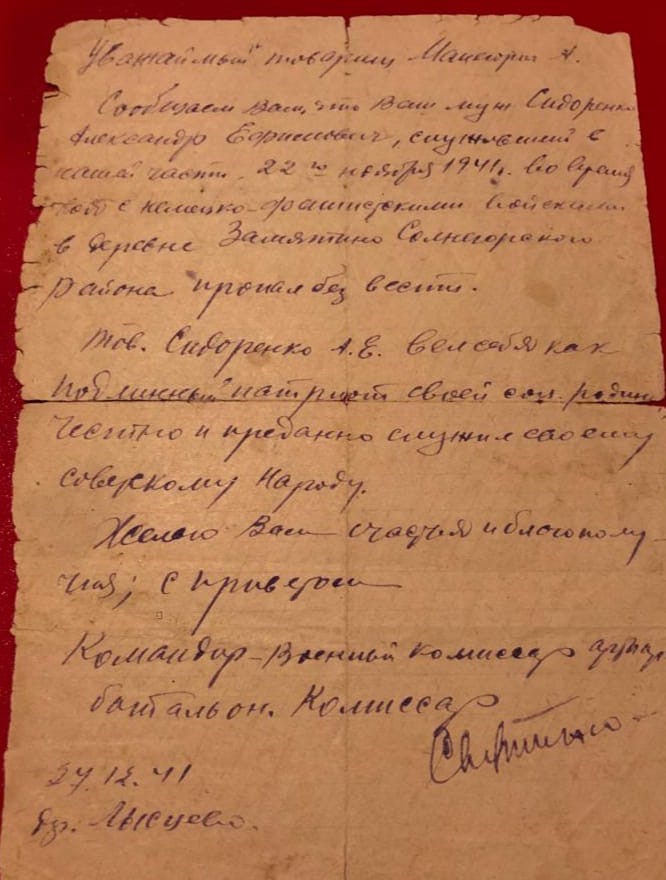 Уважаймый товарищ А.
Сообщаем Вам, что Ваш муж Сидоренко
Александр Ефимович, служивший в
нашей части, 22го ноября 1941г. во время
боёв с немецко-фашистскими войсками
в деревне Замятино Солнегорского
района пропал без вести.
Тов. Сидоренко А.Е. вел себя как
подлинный патриот своей соц. родины
честно и преданно служил своему
советскому Народу.
Желаю Вам счастья и благополу-
чия; с приветом
Командир-Военный комиссар
батальон. Комиссар
27.12.41
др.